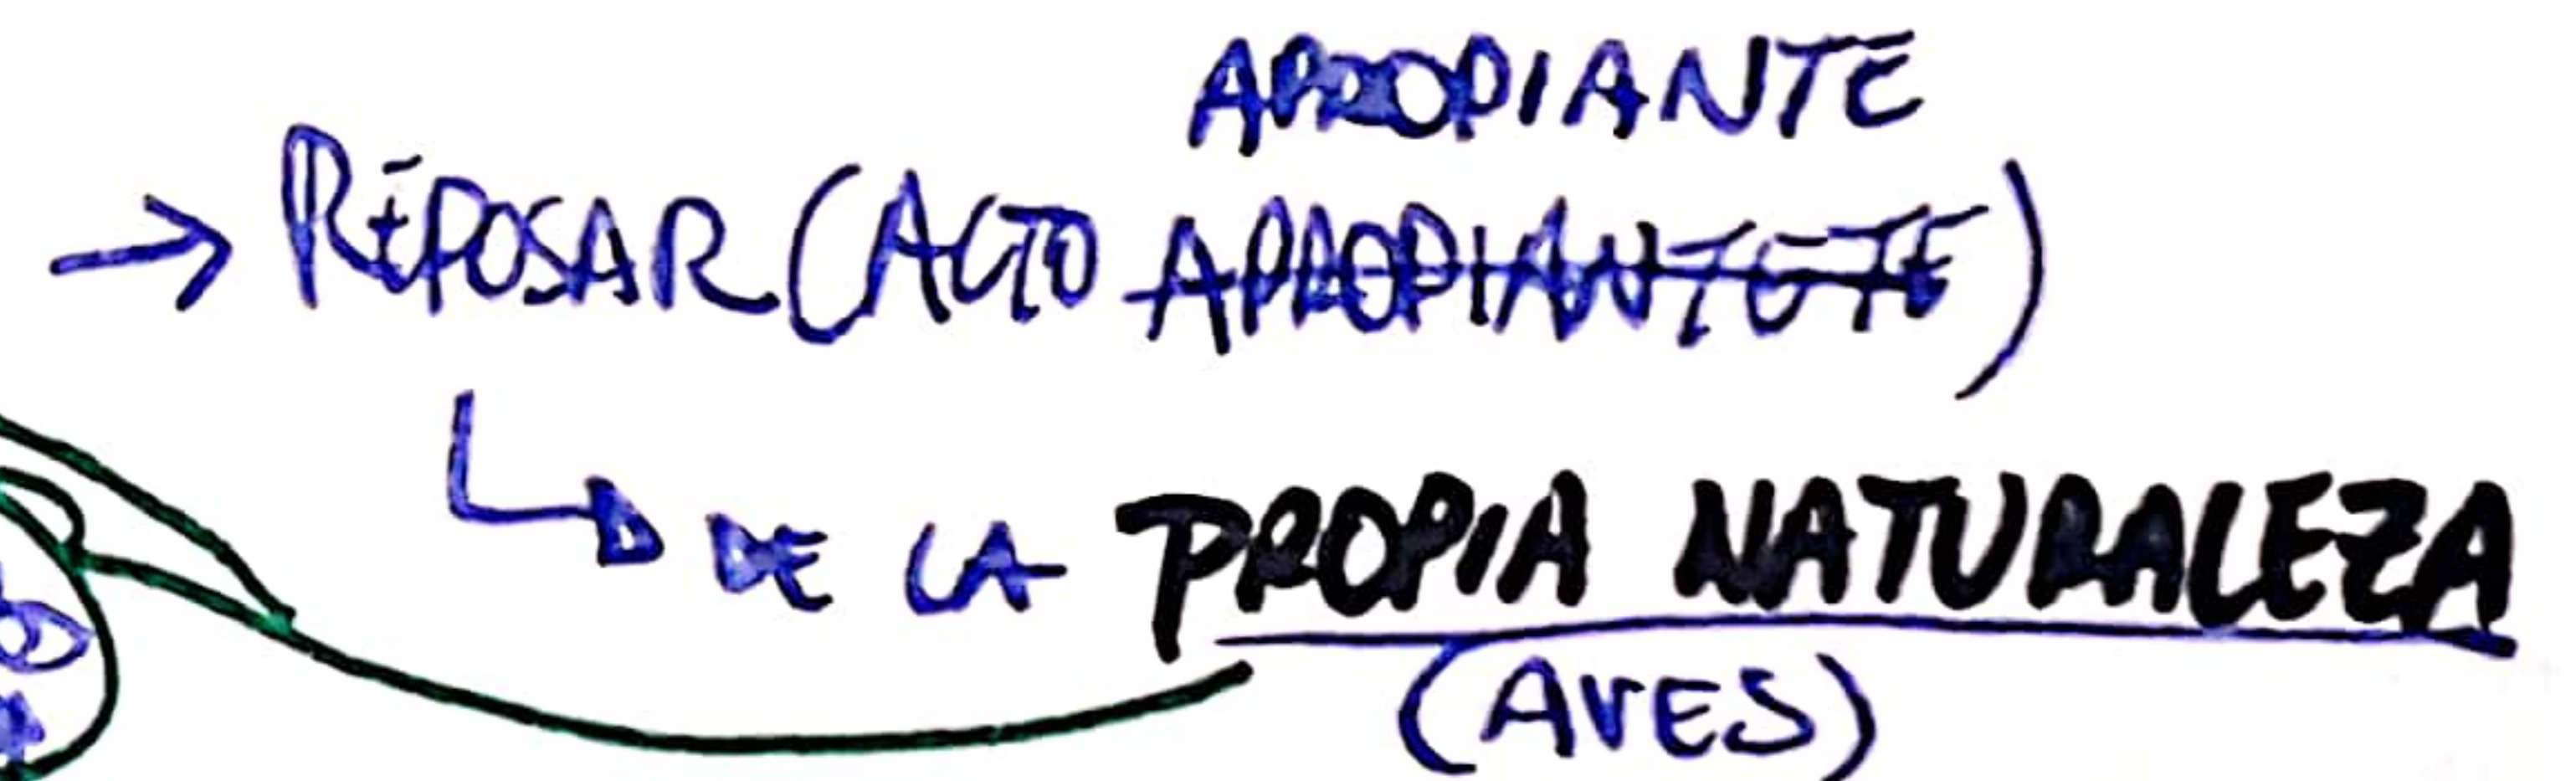 APROPIANTE
→ REPOSAR (ACTO APROPIANTETE)
↳ DE LA PROPIA NATURALEZA
(AVES)